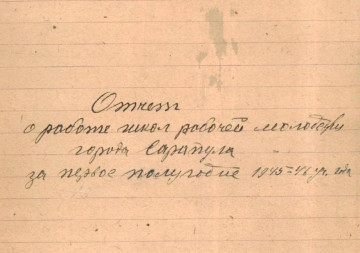 Отчет
о работе школ рабочей молодежи
города Сарапула
за первое полугодие 1945-46 уч. года